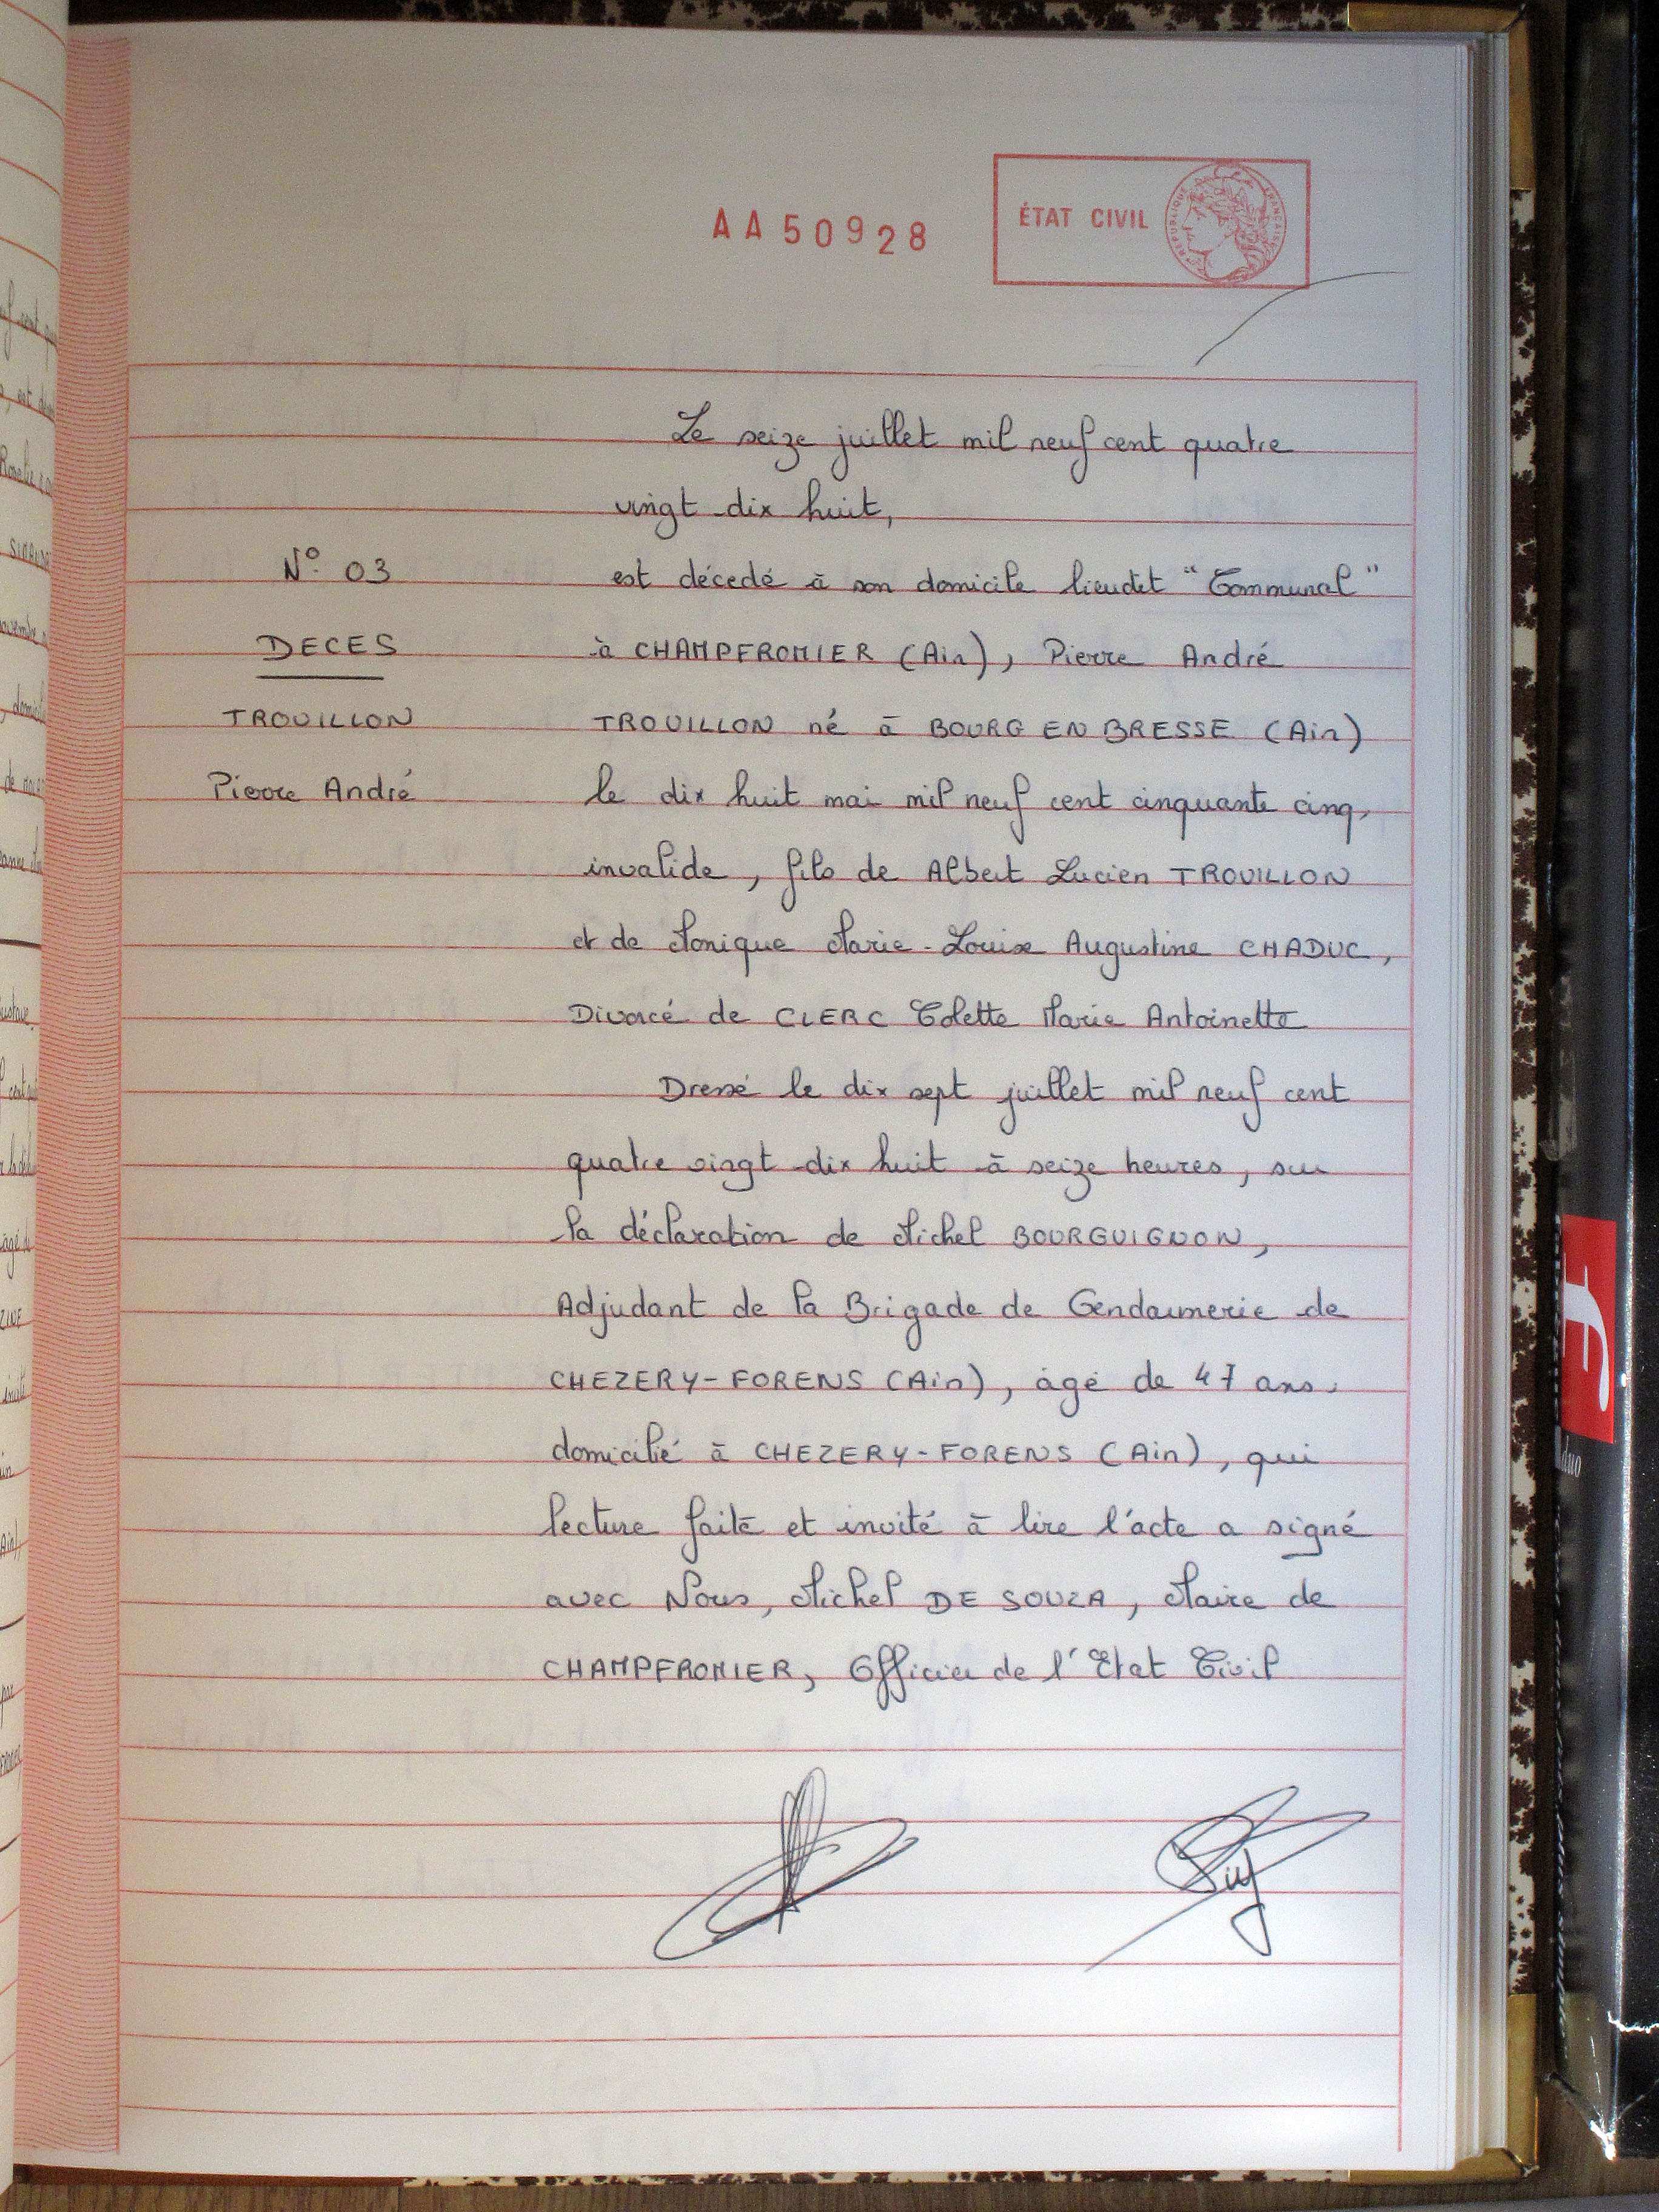 AA50928
ÉTAT CIVIL
RÉPUBLIQUE FRANÇAISE
Le seize juillet mil neuf cent quatre
vingt dix huit,
N° 03
est décedé à son domicile lieudit "Communal"
DECES
à CHAMPFROMIER (Ain), Pierre André
TROUILLON
TROUILLON né à BOURG EN BRESSE (Ain)
Pierre André
le dix huit mai mil neuf cent cinquante cinq,
invalide, fils de Albert Lucien TROUILLON
et de Monique Marie-Louise Augustine CHADUC,
Divorcé de CLERC Colette Marie Antoinette
Dressé le dix sept juillet mil neuf cent
quatre vingt dix huit à seize heures, sur
la déclaration de Michel BOURGUIGNON,
Adjudant de la Brigade de Gendarmerie de
CHEZERY-FORENS (Ain), âgé de 47 ans,
domicilié à CHEZERY-FORENS (Ain), qui
lecture faite et invité à lire l'acte a signé
avec Nous, Michel DE SOUZA, Maire de
CHAMPFROMIER, Officier de l'Etat Civil
duo